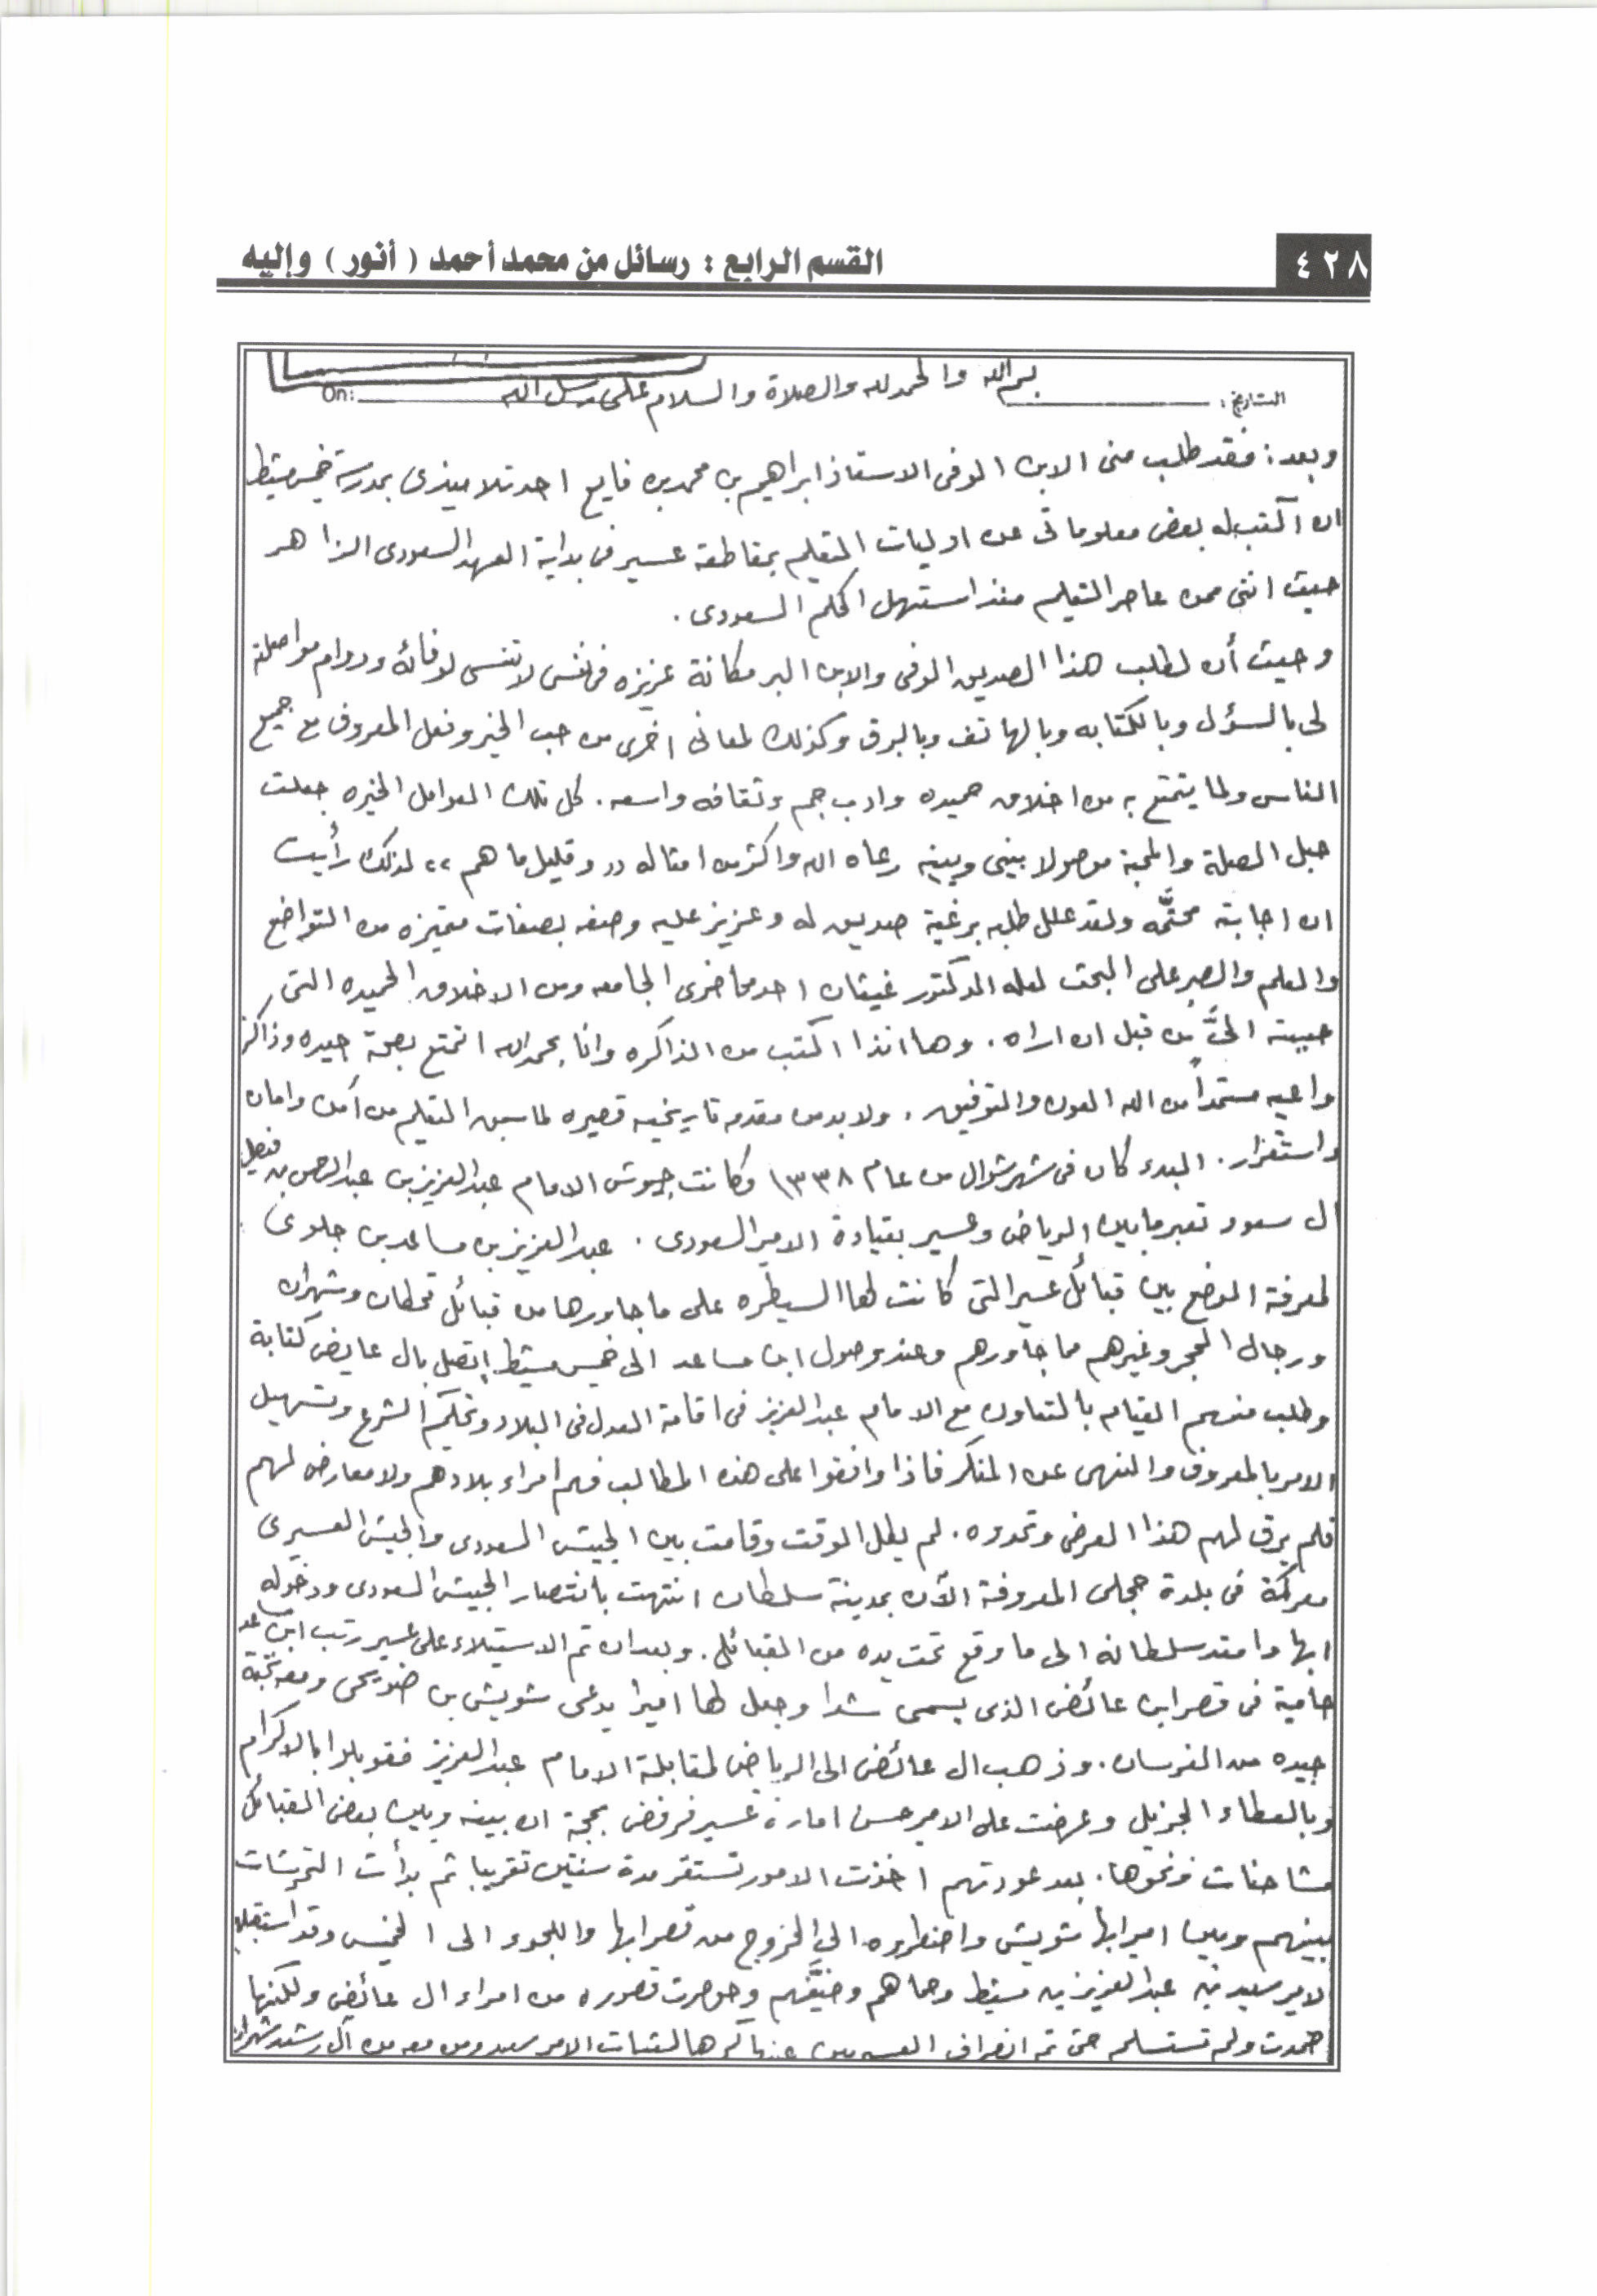 ٤٢٨
القسم الرابع : رسائل من محمد أحمد ( أنور ) وإليه
بسم الله والحمد لله والصلاة والسلام على رسول الله
التاريخ :
On:
وبعد : فقد طلب منى الابن الوفى الاستاذ ابراهيم بن محمد بن فايع احد تلاميذى بمدرسة خميس مشيط
ان اكتب له بعض معلوماتى عن اوليات التعليم بمقاطعة عسير فى بداية العهد السعودى الزاهر
حيث اننى ممن عاصر التعليم منذ استهل الحكم السعودى .
وحيث أن لطلب هذا الصديق الوفى والابن البر مكانة عزيزه فى نفسى لا تنسى لوفائه ودوام مواصلته
لى بالسؤل وبالكتابه وبالهاتف وبالبرق وكذلك لمعانى اخرى من حب الخير وفعل المعروف مع جميع
الناس ولما يتمتع به من اخلاق حميده وادب جم وثقافه واسعه . كل تلك العوامل الخيره جعلت
حبل الصلة والمحبة موصولا بينى وبينه رعاه الله واكثر من امثاله (( وقليل ما هم )) لذلك رأيت
ان اجابته محتَّمه ولقد علل طلبه برغبة صديق له وعزيز عليه وصفه بصفات متميزه من التواضع
والعلم والصبر على البحث لعله الدكتور غيثان احد محاضرى الجامعه ومن الاخلاق الحميده التى
حببته الىَّ من قبل ان اراه . وها انذا اكتب من الذاكره وانا بحمد الله اتمتع بصحة جيده وذاكره
واعيه مستمداً من الله العون والتوفيق . ولا بد من مقدمه تاريخيه قصيره لما سبق التعليم من أمن وامان
واستقرار . البدء كان فى شهر شوال من عام ١٣٣٨ وكانت جيوش الامام عبدالعزيز بن عبدالرحمن بن فيصل
ال سعود تعبر ما بين الرياض وعسير بقيادة الامير السعودى . عبدالعزيز بن مساعد بن جلوى
لمعرفة الوضع بين قبائل عسير التى كانت لها السيطره على ما جاورها من قبائل قحطان وشهران
ورجال الحجر وغيرهم مما جاورهم وعند وصول ابن مساعد الى خميس مشيط اتصل بال عايض كتابة
وطلب منهم القيام بالتعاون مع الامام عبدالعزيز فى اقامة العدل فى البلاد وتحكيم الشرع وتسهيل
الامر بالمعروف والنهى عن المنكر فاذا وافقوا على هذه المطالب فهم امراء بلادهم ولا معارض لهم
فلم يرق لهم هذا العرض وتحدوه . لم يطل الوقت وقامت بين الجيش السعودى والجيش العسيرى
معركة فى بلدة حجلى المعروفة الآن بمدينة سلطان انتهت بانتصار الجيش السعودى ودخوله
ابها وامتد سلطانه الى ما وقع تحت يده من القبائل . وبعد ان تم الاستيلاء على عسير رتب ابن مساعد
حامية فى قصر ابن عائض الذى يسمى شدا وجعل لها اميرا يدعى شويش بن ضويحى ومعه نخبة
جيده من الفرسان . وذهب ال عائض الى الرياض لمقابلة الامام عبدالعزيز فقوبلوا بالاكرام
وبالعطاء الجزيل وعرضت على الامير حسن امارة عسير فرفض بحجة ان بينه وبين بعض القبائل
مشاحنات ونحوها . بعد عودتهم اخذت الامور تستقر مدة سنتين تقريبا ثم بدأت التحرشات
بينهم وبين امير ابها شويش واضطروه الى الخروج من قصر ابها واللجوء الى الخميس وقد استقبلهم
الامير سعيد بن عبدالعزيز بن مشيط وحماهم وضيَّفهم وحوصرت قصوره من امراء ال عائض ولكنها
صمدت ولم تستسلم حتى تم انصراف عنها كرها لثبات الامير سعيد ومن معه من آل رشيد شهران